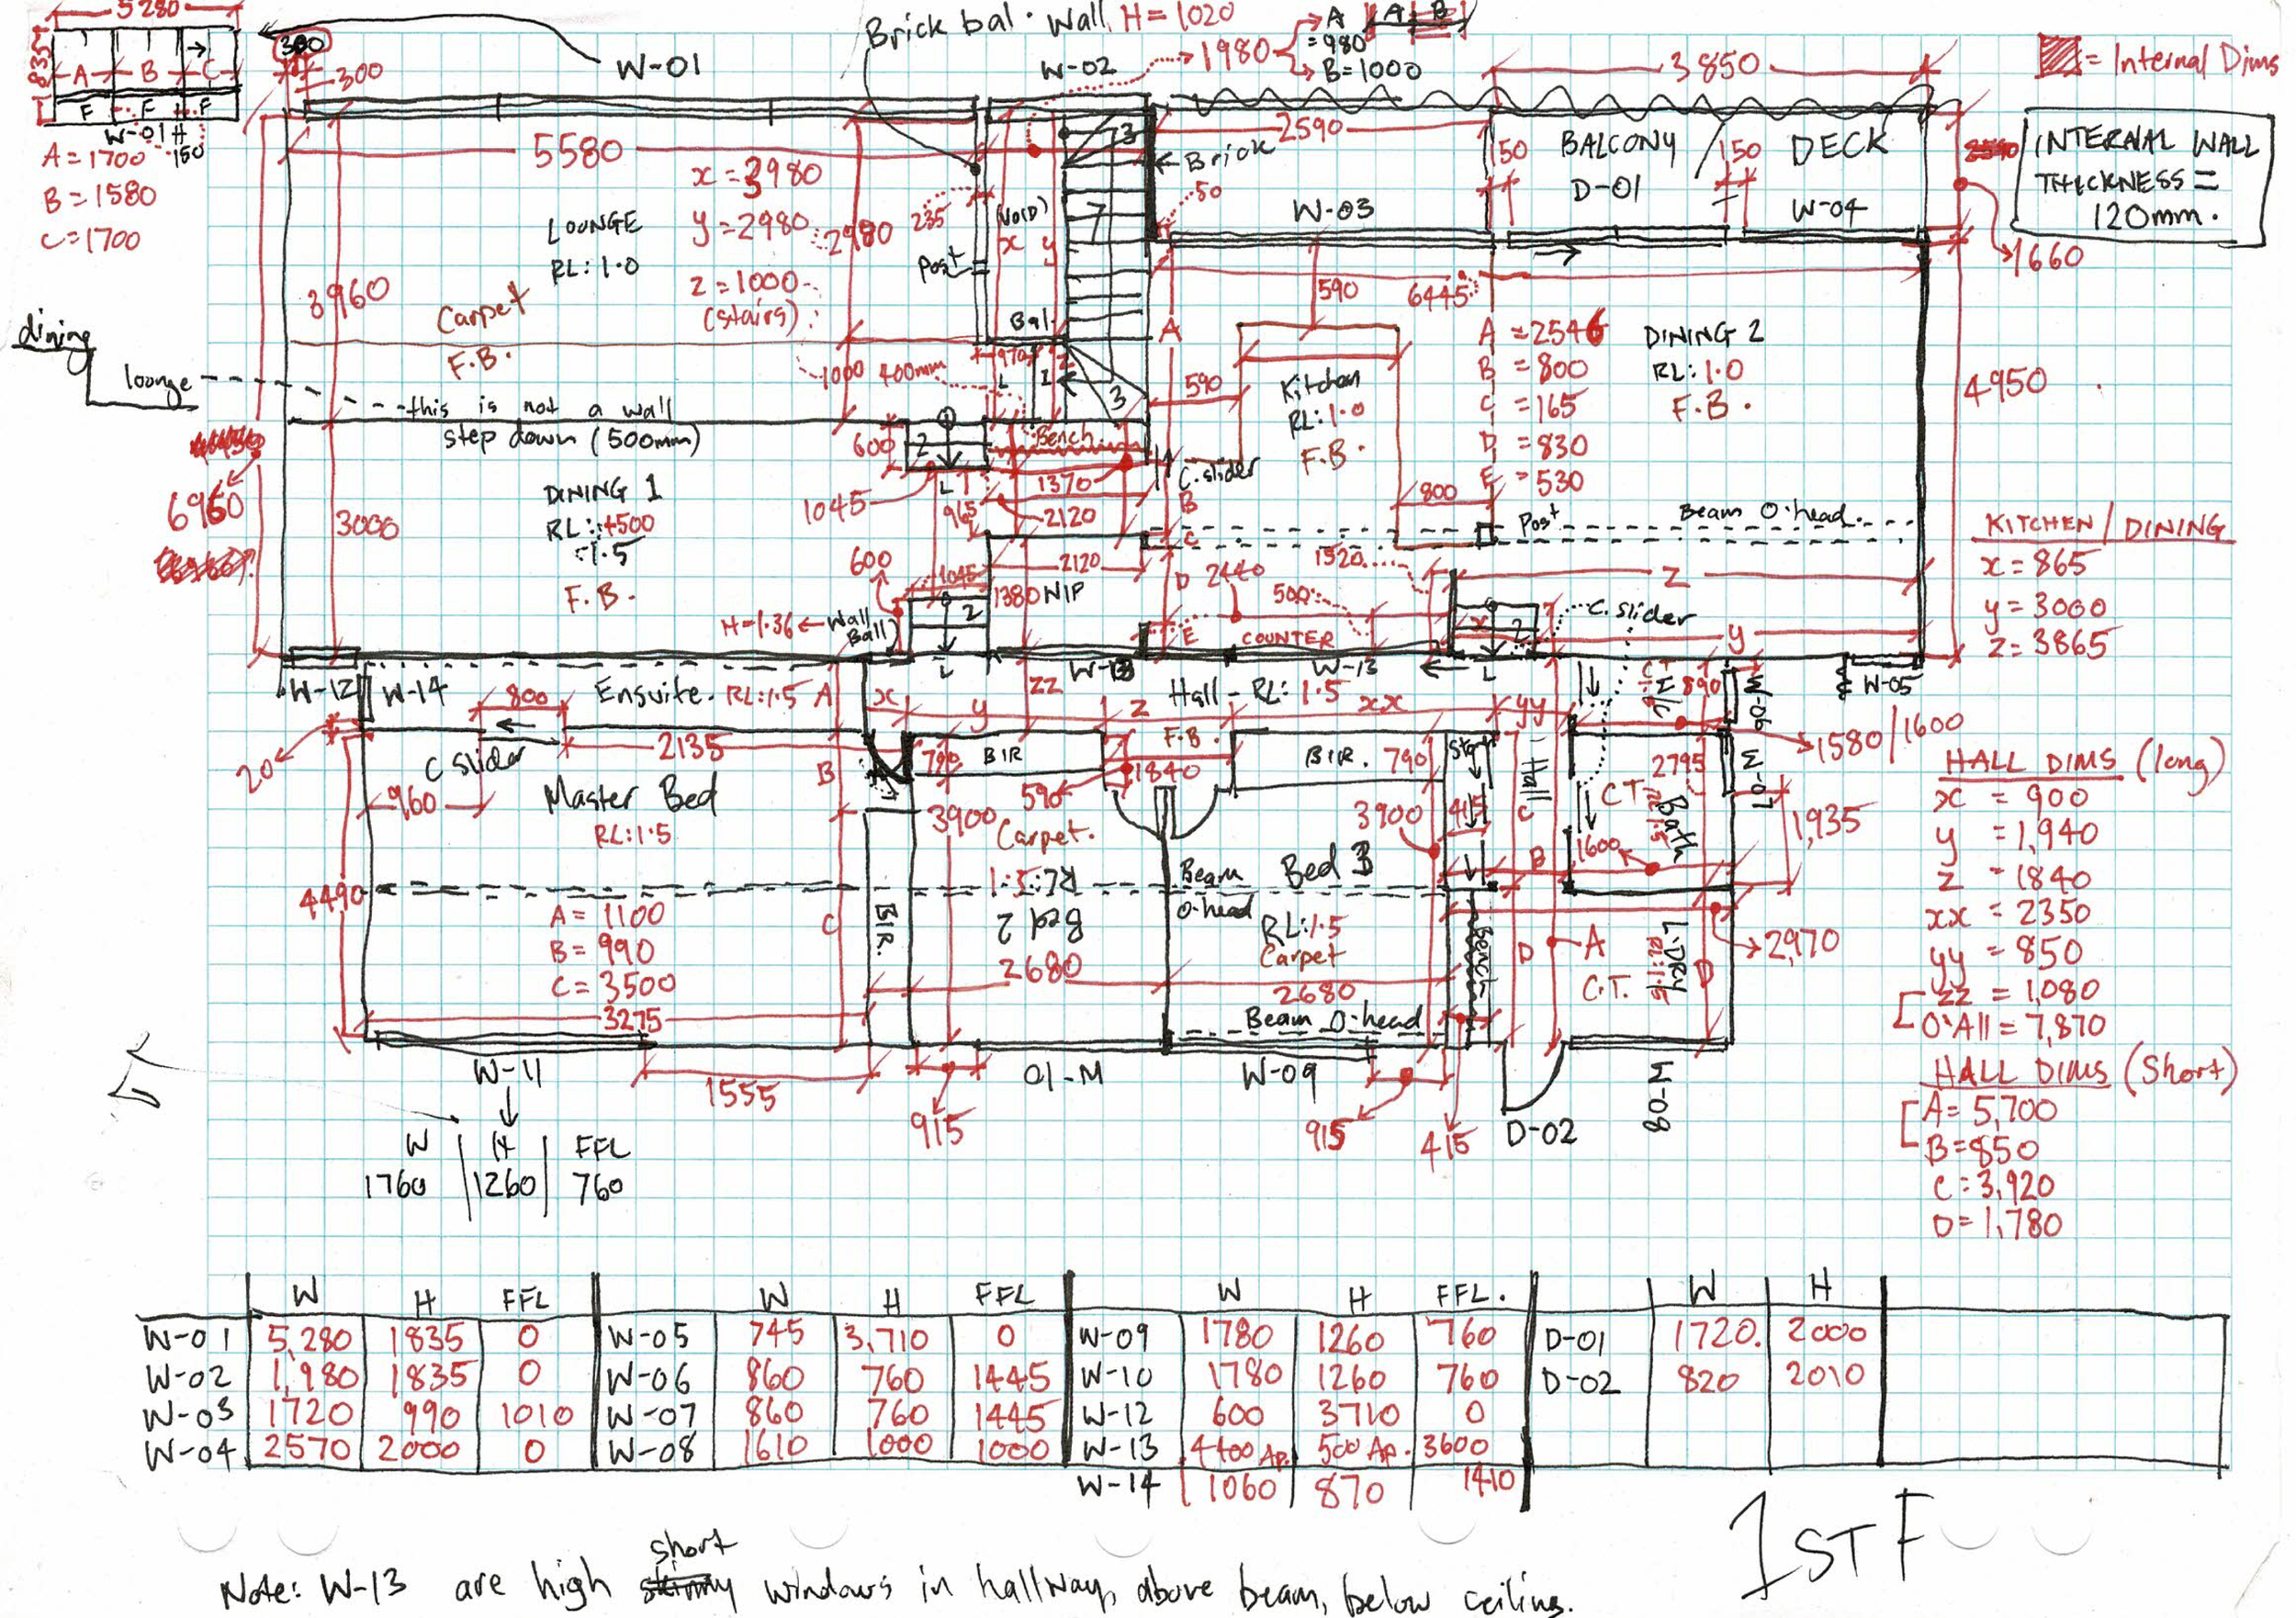 5280
Brick bal. Wall H=1020
A
A B
=980
B=1000
1980
300
300
W-01
W-02
3850
= Internal Dims
835
A B C
F F F
W-01 H
150
A=1700
B=1580
C=1700
5580
x=3980
y=2980
2980
z=1000
(stairs)
235
(VOID)
x y
3
7
Brick
50
2590
150
BALCONY / DECK
D-01
150
W-03
W-04
INTERNAL WALL
THICKNESS =
120mm.
1660
LOUNGE
RL: 1.0
3960
Carpet
F.B.
Post
Bal.
970
1000
400mm
L
1
3
590
6445
A
590
Kitchen
RL: 1.0
F.B.
A = 2546
B = 800
C = 165
D = 830
E = 530
DINING 2
RL: 1.0
F.B.
4950
dining
lounge
this is not a wall
step down (500mm)
600
2
Bench
C.slider
B
800
1370
1045
L
965
2120
C
Post
Beam O-head.
6960
3000
DINING 1
RL: +500
-1.5
F.B.
600
1045
2120
1380
NIP
D
2440
1520
500
Z
KITCHEN / DINING
x = 865
y = 3000
z = 3865
H=1.36
Wall
Ball)
2
E
COUNTER
x
2
C. slider
y
W-12
W-14
800
Ensuite. RL:1.5
A
x
L
y
W-13
ZZ
z
Hall - RL: 1.5
W-13
xx
L
yy
890
W-06
W-05
1580/1600
20
C slider
2135
B
790
BIR
F.B.
1840
590
BIR.
790
Hall
2795
W-07
960
Master Bed
RL:1.5
3900
Carpet.
3900
415
C
C.T.
Bath
1600
B
1,935
HALL DIMS (long)
x = 900
y = 1,940
z = 1840
xx = 2350
yy = 850
zz = 1,080
O'All = 7,870
4490
A= 1100
B= 990
C= 3500
C
BIR.
RL:1.5
Bed 2
2680
Beam
O-head
Bed 3
RL:1.5
Carpet
2680
Bench
D
A
L'DRY
RL:1.5
C.T.
D
2,970
3275
Beam O-head
W-11
1555
915
W-10
W-09
915
415
D-02
W-08
HALL DIMS (Short)
A= 5,700
B=850
C=3,920
D=1,780
W H FFL
1760 1260 760
W H FFL W H FFL W H FFL. W H
W-01 5,280 1835 0 W-05 745 3,710 0 W-09 1780 1260 760 D-01 1720. 2000
W-02 1,980 1835 0 W-06 860 760 1445 W-10 1780 1260 760 D-02 820 2010
W-03 1720 990 1010 W-07 860 760 1445 W-12 600 3710 0
W-04 2570 2000 0 W-08 1610 1000 1000 W-13 4400 Ap. 500 Ap. 3600
W-14 1060 870 1410
1ST F
short
Note: W-13 are high windows in hallway, above beam, below ceiling.